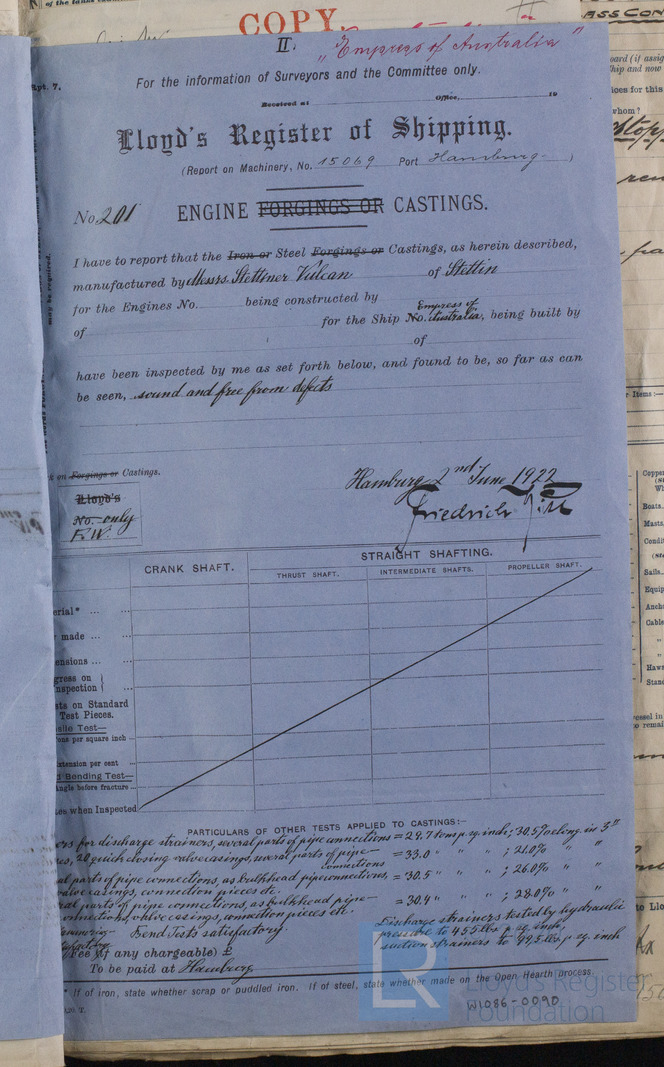 COPY.
II.
"Empress of Australia"
For the information of Surveyors and the Committee only.
Received at Office, 19
Lloyd's Register of Shipping.
(Report on Machinery, No. 15069 Port Hamburg )
No. 201 ENGINE FORGINGS OR CASTINGS.
I have to report that the Iron or Steel Forgings or Castings, as herein described,
manufactured by Messrs Stettiner Vulcan of Stettin
for the Engines No. being constructed by
of for the Ship No. Empress of Australia, being built by
of
have been inspected by me as set forth below, and found to be, so far as can
be seen, sound and free from defects
on Forgings or Castings.
Hamburg 2nd June 1922
Lloyd's
No. only
F.W.
Friedrich
CRANK SHAFT. STRAIGHT SHAFTING.
THRUST SHAFT. INTERMEDIATE SHAFTS. PROPELLER SHAFT.
erial* ... ...
made ... ...
ensions ... ...
gress on
nspection ...
sts on Standard
Test Pieces.
sile Test—
ons per square inch ...
xtension per cent ...
d Bending Test—
ngle before fracture ...
es when Inspected
PARTICULARS OF OTHER TESTS APPLIED TO CASTINGS:-
for discharge strainers, several parts of pipe connections = 29.7 tons p. sq. inch; 30.5% elong. in 3"
20 quick closing valve casings, several parts of pipe-
connections = 33.0 " " " ; 21.0% " "
al parts of pipe connections, as bulkhead pipe connections, = 30.5 " " " ; 26.0% " "
valve casings, connection pieces etc.
al parts of pipe connections, as bulkhead pipe- = 30.4 " " " ; 28.0% " "
connections, valve casings, connection pieces etc.
Bend Tests satisfactory.
Discharge strainers tested by hydraulic
pressure to 45.5 lbs p. sq. inch,
suction strainers to 49.5 lbs p. sq. inch
Fee (if any chargeable) £
To be paid at Hamburg
* If of iron, state whether scrap or puddled iron. If of steel, state whether made on the Open Hearth process.
LR
Lloyd's Register
Foundation
W1086-0090